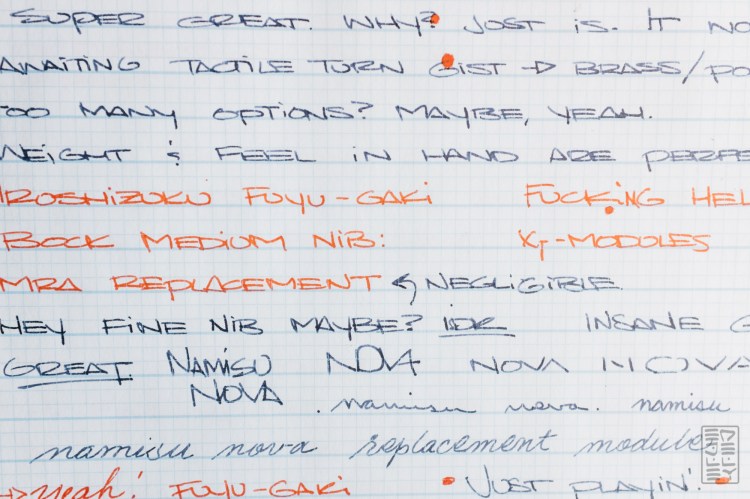 SUPER GREAT. WHY? JUST IS. IT NO
AWAITING TACTILE TURN GIST → BRASS/PO
TOO MANY OPTIONS? MAYBE, YEAH.
WEIGHT & FEEL IN HAND ARE PERFE
IROSHIZUKU FUYU-GAKI FUCKING HEL
BOCK MEDIUM NIB: XT-MODULES
MRA REPLACEMENT NEGLIGIBLE
HEY FINE NIB MAYBE? IDK INSANE G
GREAT. NAMISU NOVA NOVA NOVA
NOVA . namisu nova. namisu
namisu nova replacement module
→ yeah! FUYU-GAKI • JUST PLAYIN'.